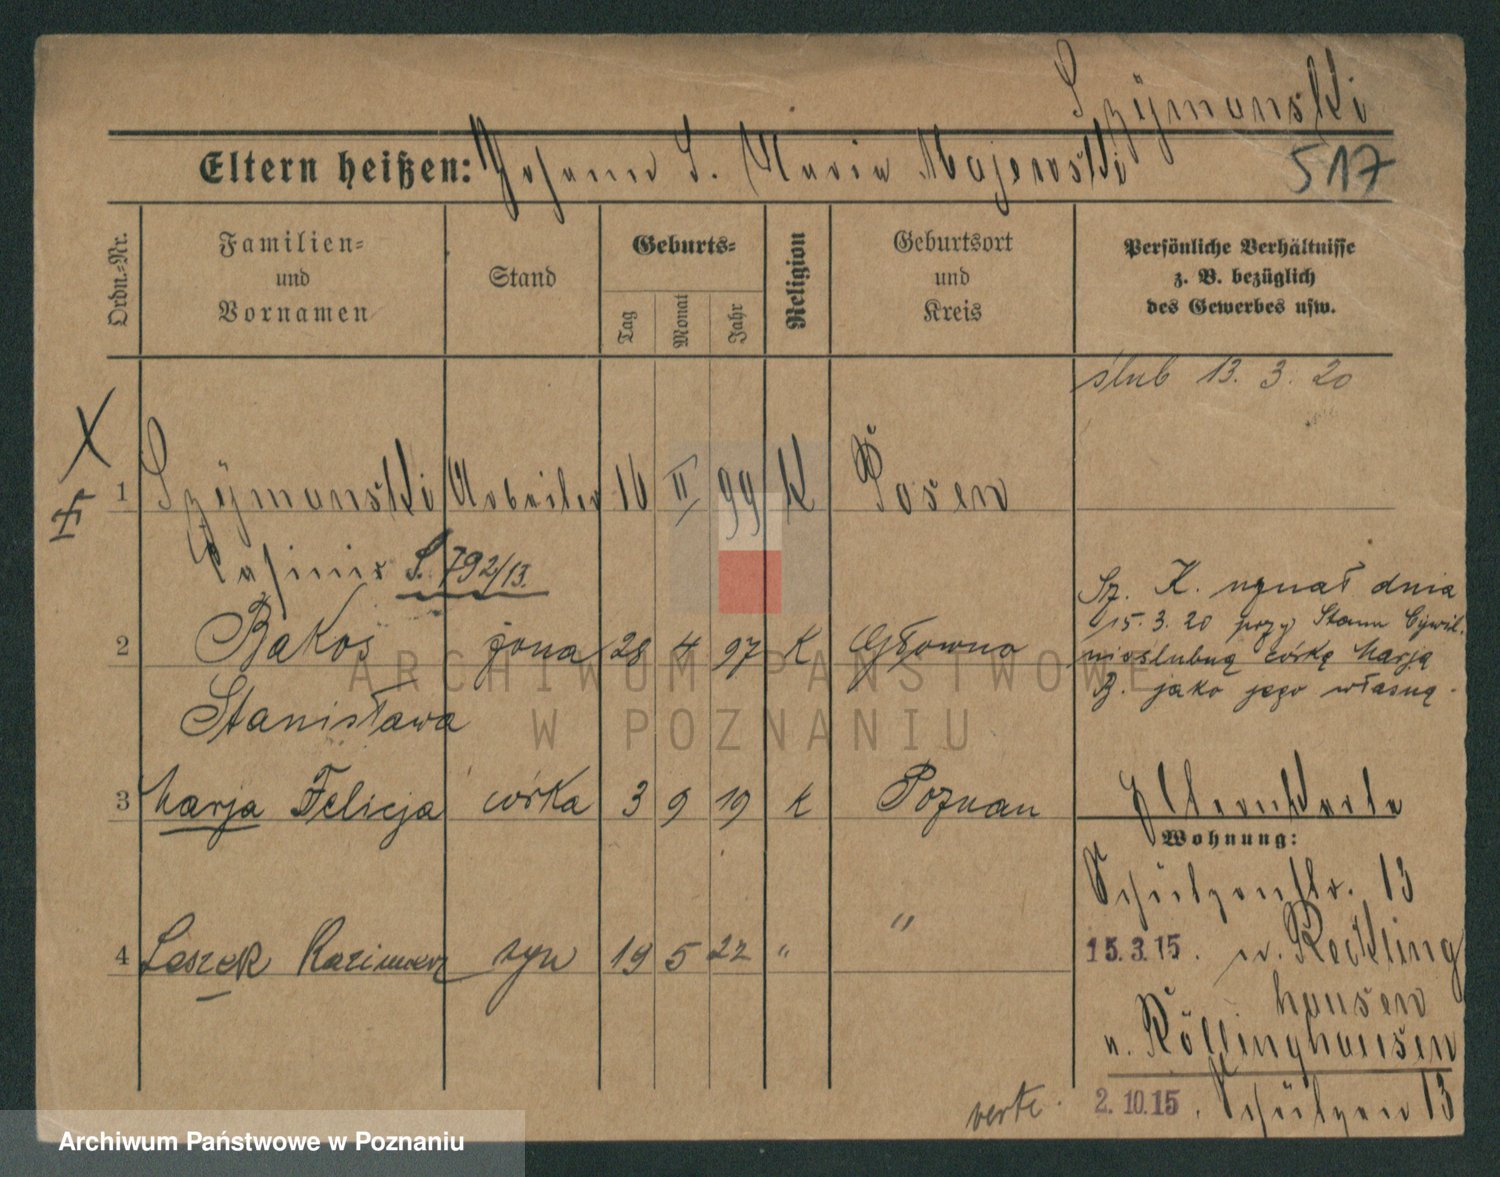 Szymanski
Eltern heißen: Johann S. Maria Majewski
517
Ordn.-Nr.
Familien-
und
Vornamen
Stand
Geburts-
Tag
Monat
Jahr
Religion
Geburtsort
und
Kreis
Persönliche Verhältnisse
z. B. bezüglich
des Gewerbes usw.
ślub 13. 3. 20
1 Szymanski Arbeiter 16 II 99 K Posen
Casimir S. 792/13.
Sz. K. uznał dnia
15. 3. 20 przy Stanu Cywil.
nieslubną córkę Marją
B. jako jego własną.
2 Bakos żona 28 4 97 K Główno
Stanisława
3 Marja Felicja córka 3 9 19 K Poznan
Elternkarte
Wohnung:
Schützenstr. 13
4 Leszek Kazimierz syn 19 5 22 " "
15.3.15. n. Reckling
hausen
n. Röllinghausen
2.10.15. Schützen 13
verte.
ARCHIWUM PAŃSTWOWE
W POZNANIU
Archiwum Państwowe w Poznaniu